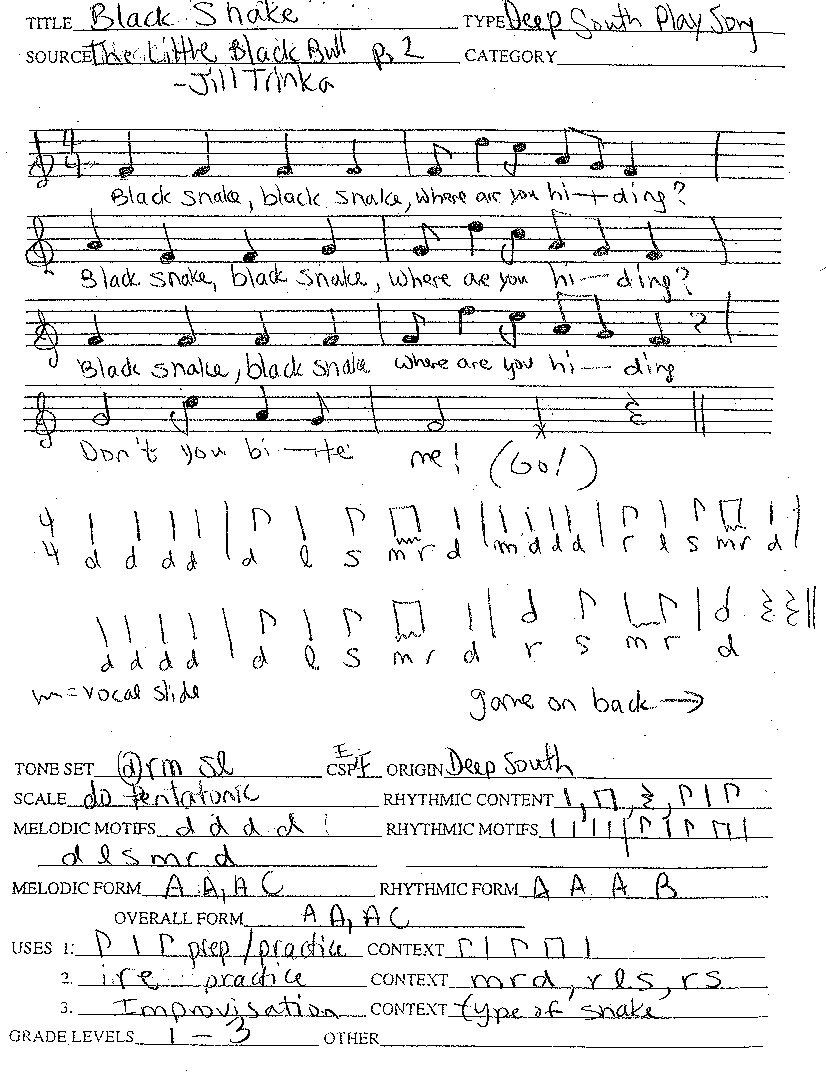 TITLE Black Snake TYPE Deep South Play Song
SOURCE The Little Black Bull p. 2 CATEGORY
-Jill Trinka
4 4
Black snake, black snake, where are you hi-+ding?
Black snake, black snake, where are you hi— ding?
Black snake, black snake where are you hi— ding
Don't you bi—te me! (Go!)
4 4 d d d d d l s m r d m d d d r l s m r d
d d d d d l s m r d r s m r d
m = vocal slide game on back →
TONE SET (d)rm sl CSP F ORIGIN Deep South
SCALE do pentatonic RHYTHMIC CONTENT
MELODIC MOTIFS d d d d RHYTHMIC MOTIFS
d l s m r d
MELODIC FORM A A, A C RHYTHMIC FORM A A A B
OVERALL FORM A A, A C
USES 1: prep/practice CONTEXT
2. re practice CONTEXT mrd, rls, rs
3. Improvisation CONTEXT type of snake
GRADE LEVELS 1 - 3 OTHER